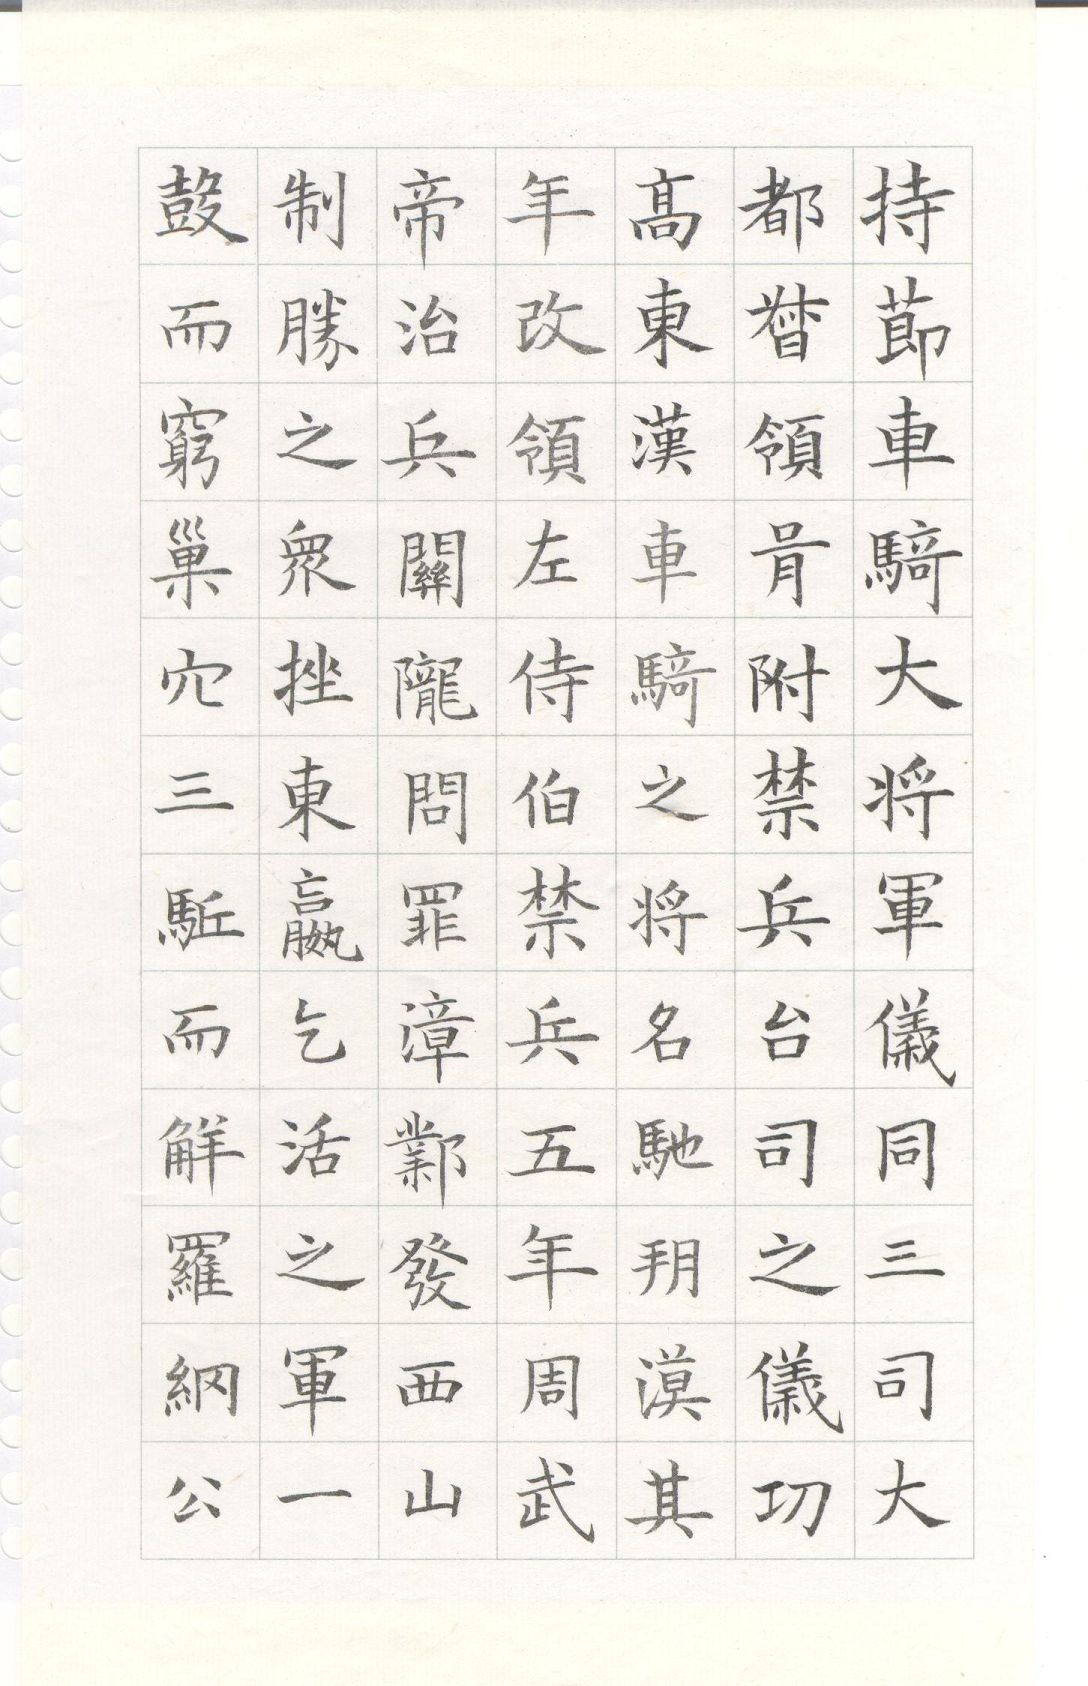 持節車騎大将軍儀同三司大
都督領胥附禁兵台司之儀功
高東漢車騎之将名馳朔漠其
年改領左侍伯禁兵五年周武
帝治兵關隴問罪漳鄴發西山
制勝之衆挫東嬴乞活之軍一
鼓而窮巢穴三駈而解羅網公